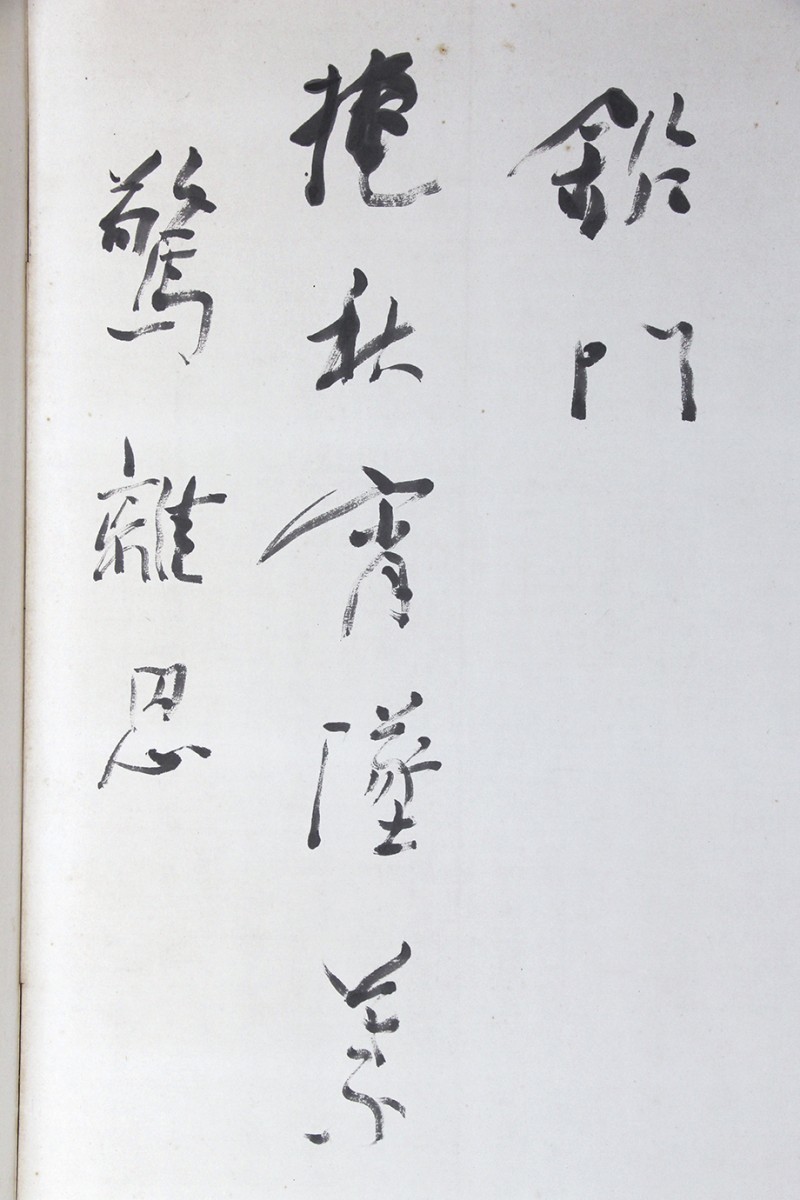 鉛門
掩秋宵墜葉
驚離思